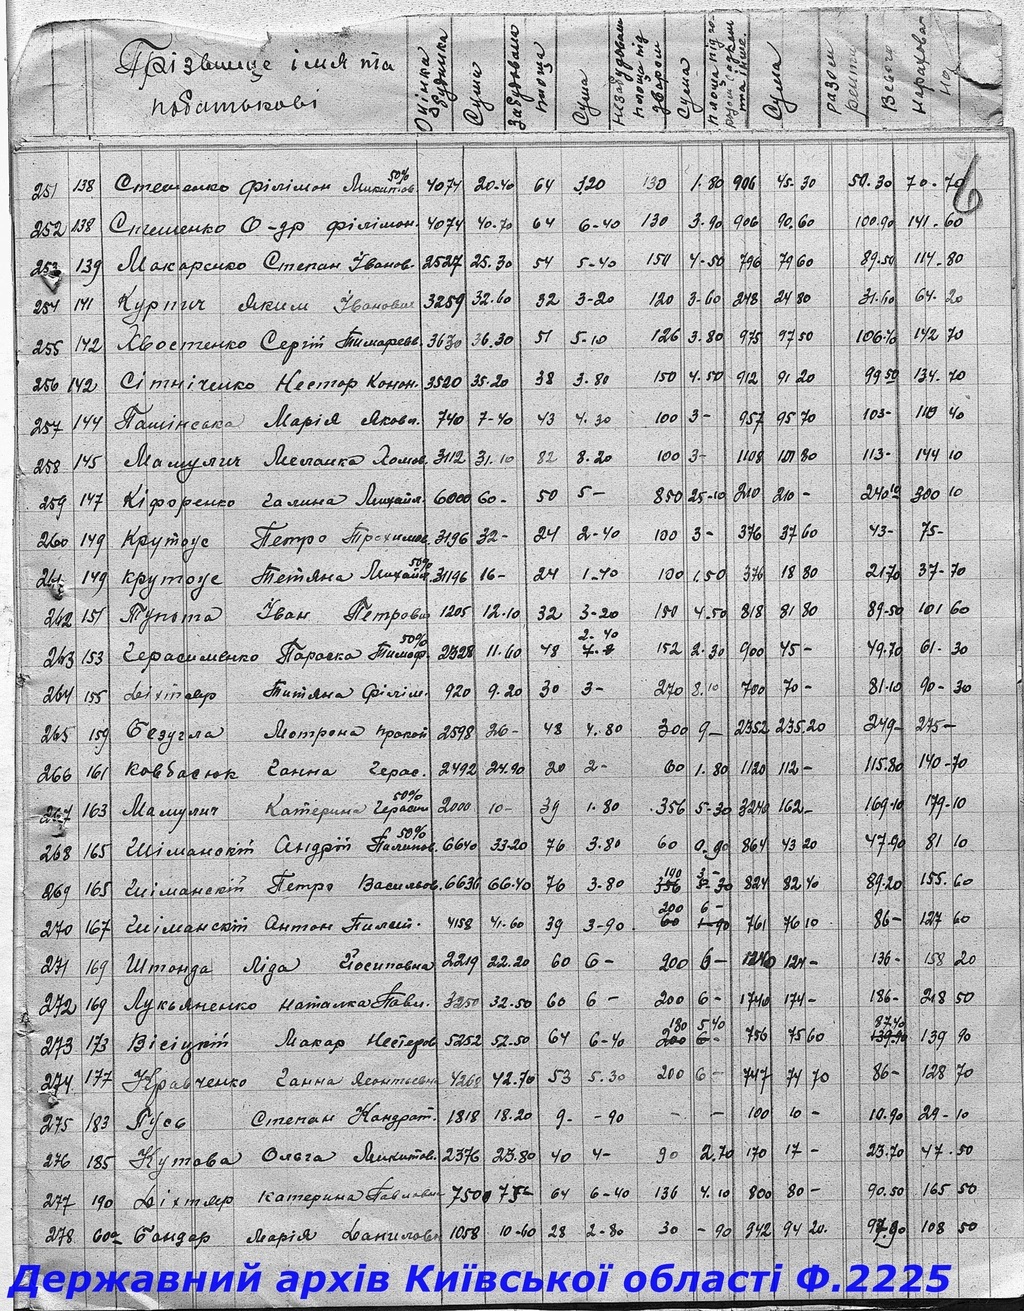 Прізвище імя та
побатькові
Оцінка будинка
Сума
Забудована площа
Сума
Незабудован площа під двором
Сума
площа під
та інше.
Сума
разом
Всього
Нарахован
6
251 138 Стешенко Філімон Микитов. 50% 4074 20-40 64 3.20 130 1.80 906 45-30 50.30 70-70
252 138 Стешенко О-др Філімон. 4074 40-70 64 6-40 130 3-90 906 90.60 100.90 141-60
253 139 Макаренко Степан Іванов. 2527 25.30 54 5-40 150 4-50 796 79 60 89.50 114-80
254 141 Курпич Яким Іванович 3259 32.60 32 3-20 120 3-60 248 24 80 31.60 64-20
255 142 Хвостенко Сергій Тимофеев. 3630 36.30 51 5-10 126 3.80 975 97 50 142 70
256 142 Сітніченко Нестор Конон. 3520 35-20 38 3.80 150 4.50 912 91 20 99 50 134-70
257 144 Пашінська Марія Яковл. 740 7-40 43 4.30 100 3- 957 95 70 103- 110 40
258 145 Мамулич Меланка Хомов. 3112 31.10 82 8.20 100 3- 1108 113- 144 10
259 147 Кіфоренко Галина Михайл. 6000 60- 50 5- 850 25-10 210 210- 240 10 300 10
260 149 Крутоус Петро Трохимов. 3196 32- 24 2-40 100 3- 376 37 60 43- 75-
261 149 Крутоус Тетяна Михайл. 50% 3196 16- 24 1-40 100 1.50 376 18 80 21 70 37-70
262 151 Пупота Іван Петрович 1205 12.10 32 3-20 150 4.50 818 81 80 89-50 101 60
263 153 Герасименко Параска Тимоф. 50% 2328 11.60 48 2-40 152 2.30 900 45- 49.70 61-30
264 155 Діхтяр Титяна Філім. 920 9.20 30 3- 270 8.10 700 70- 81.10 90-30
265 159 Безугла Мотрона Прокоп 2598 26- 48 4.80 300 9- 2352 235.20 249- 275-
266 161 Ковбасюк Ганна Герас. 2492 24.90 20 2- 60 1.80 1120 112- 115.80 140-70
267 163 Мамулич Катерина Герасим 50% 2000 10- 39 1.80 356 5-30 3240 162- 169-10 179-10
268 165 Шіманскій Андрій Палинов. 50% 6640 33-20 76 3.80 60 0.90 864 43 20 47-90 81 10
269 165 Шіманскій Петро Васильов. 6636 66-40 76 3-80 100 3- 824 82 40 89.20 155.60
270 167 Шіманскій Антон Пилип. 4158 41-60 39 3-90 200 6- 761 76 10 86- 127 60
271 169 Штонда Ліда Йосиповна 2219 22.20 60 6- 200 6- 1240 124- 136- 158 20
272 169 Лукьяненко Наталка Павл. 3250 32.50 60 6- 200 6- 1740 174- 186- 218 50
273 173 Вісіцкій Макар Нестеров 5252 52-50 64 6-40 180 5.40 756 75 60 87.40 139 90
274 177 Кравченко Ганна Леонтьевна 4260 42.70 53 5.30 200 6- 747 74 70 86- 128 70
275 183 Гусь Степан Кандрат. 1818 18.20 9. -90 - - 100 10- 10.90 29-10
276 185 Кутова Ольга Микитов. 2376 23.80 40 4- 90 2.70 170 17- 23.70 47.50
277 190 Діхтяр Катерина Павлович 7500 75- 64 6-40 136 4.10 800 80- 90.50 165 50
278 Бондар Марія Данилова 1058 10-60 28 2-80 30 -90 942 94 20. 97.90 108 50
Державний архів Київської області Ф.2225